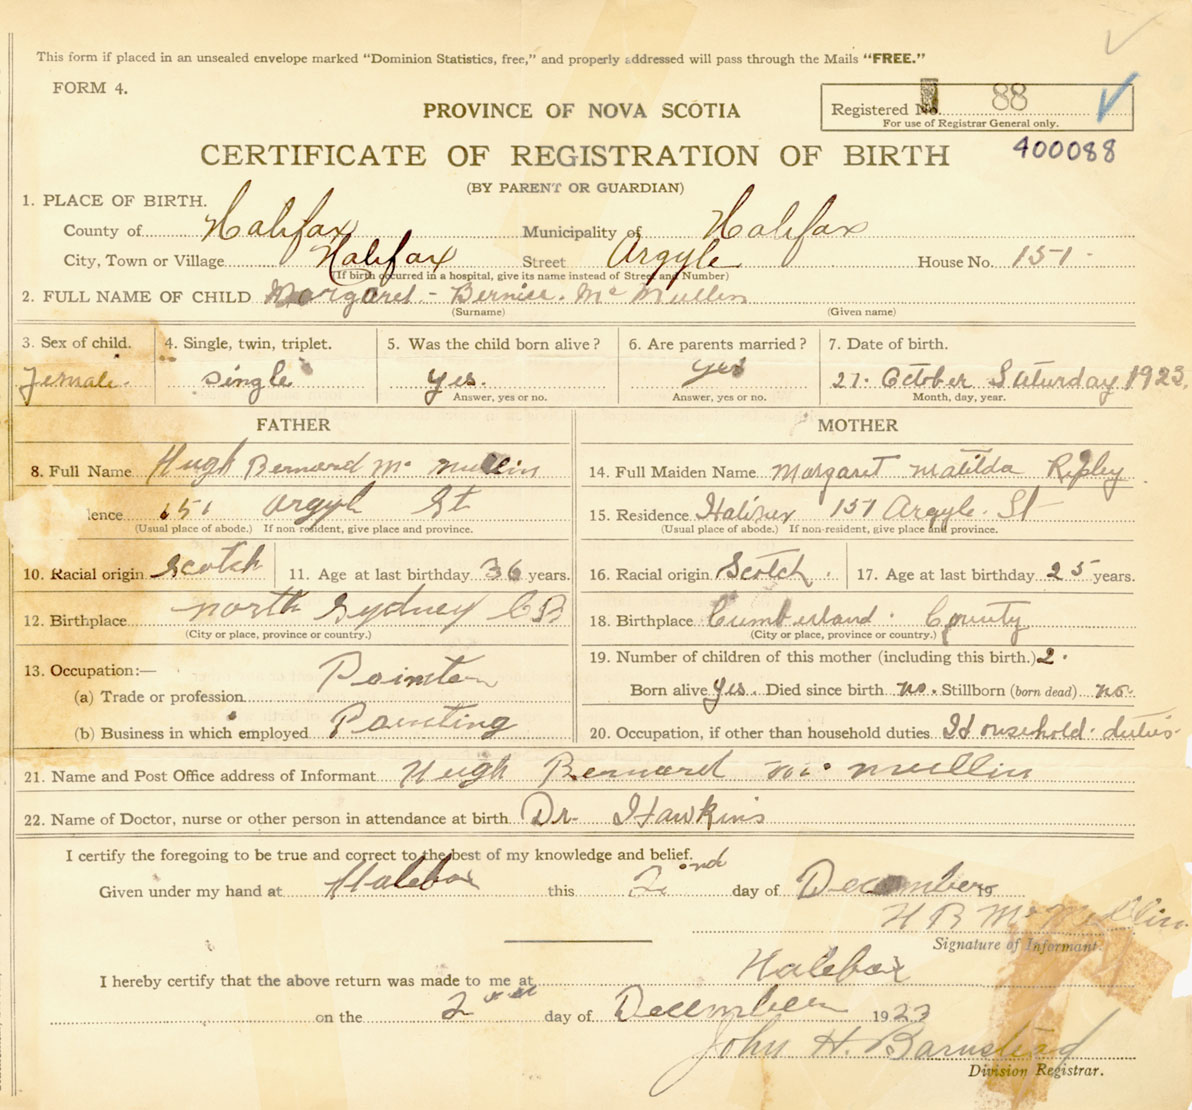 This form if placed in an unsealed envelope marked "Dominion Statistics, free," and properly addressed will pass through the Mails "FREE."
FORM 4.
Registered No. 88
For use of Registrar General only.
PROVINCE OF NOVA SCOTIA
CERTIFICATE OF REGISTRATION OF BIRTH 400088
(BY PARENT OR GUARDIAN)
1. PLACE OF BIRTH.
County of Halifax Municipality of Halifax
City, Town or Village Halifax Street Argyle House No. 151
(If birth occurred in a hospital, give its name instead of Street and Number)
2. FULL NAME OF CHILD Margaret - Bernise. Mc Mullin
(Surname) (Given name)
3. Sex of child. 4. Single, twin, triplet. 5. Was the child born alive? 6. Are parents married? 7. Date of birth.
Female. single yes. yes 27. October Saturday 1923.
Answer, yes or no. Answer, yes or no. Month, day, year.
FATHER MOTHER
8. Full Name Hugh Bernard Mc Mullin 14. Full Maiden Name Margaret Matilda Ripley
lence 151 Argyle St 15. Residence 151 Argyle. St
(Usual place of abode.) If non resident, give place and province. (Usual place of abode.) If non-resident, give place and province.
10. Racial origin Scotch 11. Age at last birthday 36 years. 16. Racial origin Scotch. 17. Age at last birthday 25 years.
12. Birthplace North Sydney C B 18. Birthplace Cumberland. County
(City or place, province or country.) (City or place, province or country.)
13. Occupation:— 19. Number of children of this mother (including this birth.) 2.
(a) Trade or profession Painter Born alive yes. Died since birth no. Stillborn (born dead) no.
(b) Business in which employed Painting 20. Occupation, if other than household duties Household. duties.
21. Name and Post Office address of Informant Hugh Bernard Mc Mullin
22. Name of Doctor, nurse or other person in attendance at birth Dr. Hawkins
I certify the foregoing to be true and correct to the best of my knowledge and belief.
Given under my hand at Halifax this 2nd day of December 19
H B Mc Mullin.
Signature of Informant.
I hereby certify that the above return was made to me at Halifax
on the 2nd day of December 1923
John H. Barnstead
Division Registrar.